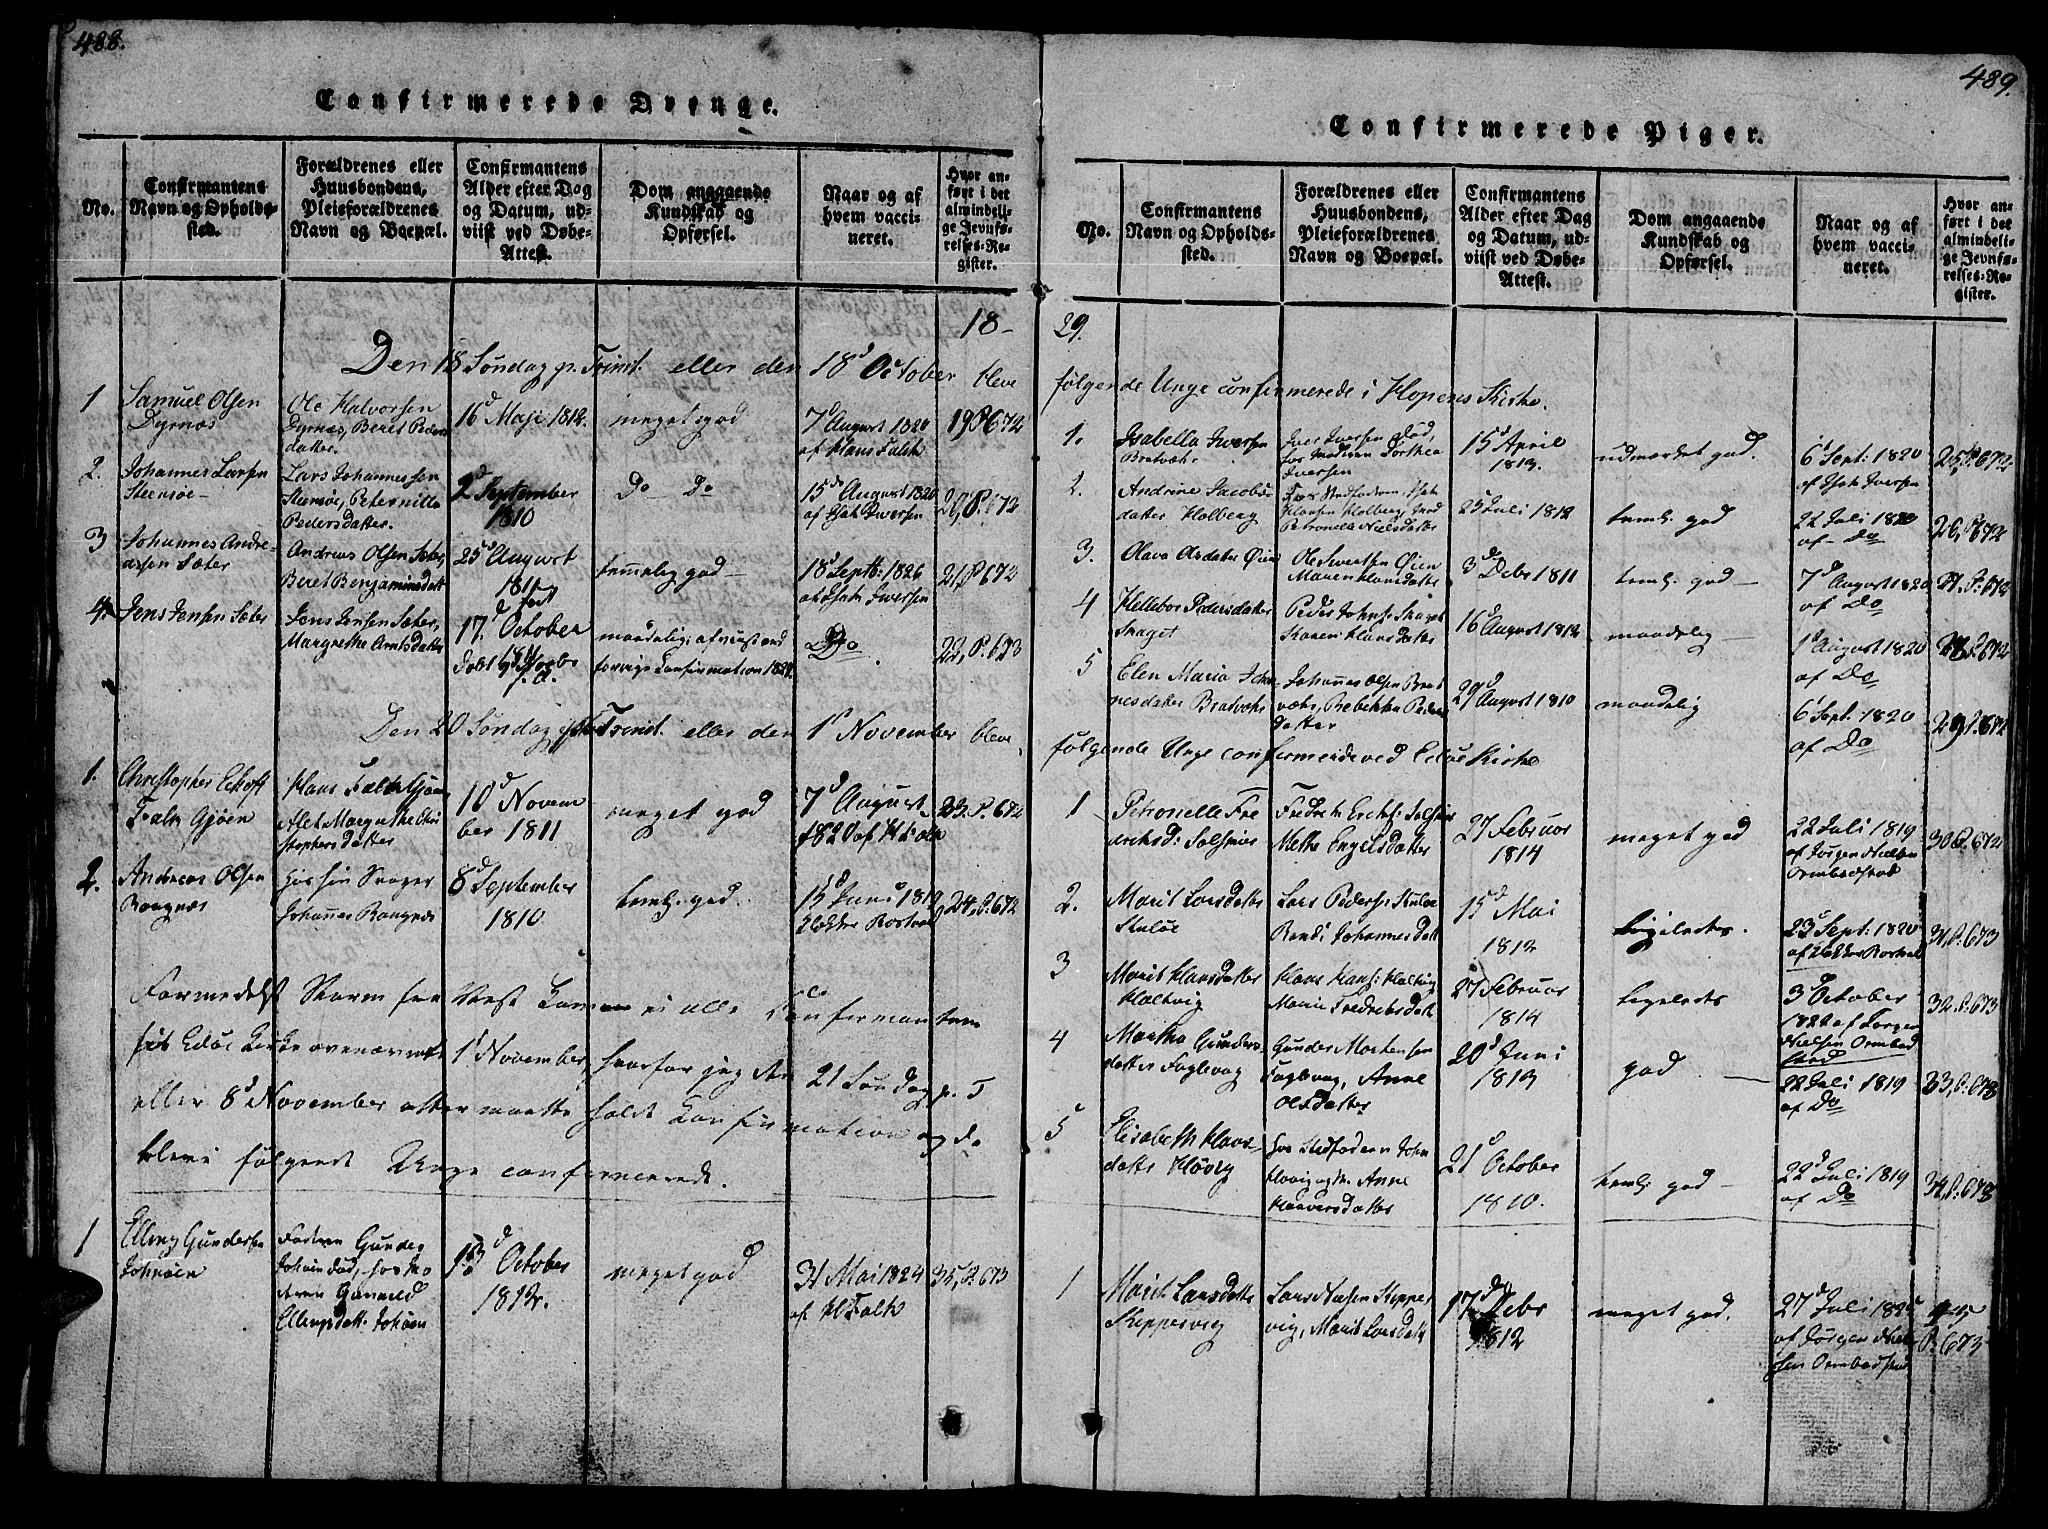 488.
Confirmerede Drenge.
No.
Confirmantens
Navn og Opholds-
sted.
Forældrenes eller
Huusbondens,
Pleieforældrenes
Navn og Boepæl.
Confirmantens
Alder efter Dag
og Datum, ud-
viist ved Døbe-
Attest.
Dom angaaende
Kundskab og
Opførsel.
Naar og af
hvem vacci-
neret.
Hvor an-
ført i det
almindeli-
ge Jevnfø-
relses-Re-
gister.
18-
Den 18 Søndag p. Trinit. eller den 18d October bleve
1
Samuel Olsen
Dyrnæs
Ole Halvorsen
Dyrnæs, Beret Peders
datter.
16d Maji 1812.
meget god
7d August 1820
af Hans Falck
19 P 672
2.
Johannes Larsen
Steensøe
Lars Johannessen
Steensøe, Peternille
Pedersdatter.
2d September
1810
Do Do
15de August 1820
af Isak Iversen
20, P. 672
3
Johannes Andre-
assen Sæter
Andreas Olsen Sæter
Beret Benjaminsdatt
25d August
1811
temmelig god
18d Septb: 1826
af Isak Iversen
21, P 672
4.
Jens Jensen Sæter
Jens Jensen Sæter,
Margrethe Arntsdatter
født
17d October
maadelig; afviist ved
forrige Confirmation 1829.
Do
22, P. 673
Den 20 Søndag p Trinit. eller den 1d November bleve
1.
Christopher Eckhoff
Falk Gjøen
Hans Falck Gjøen
Alet Margrethe Chri
stophersdatter
10d Novem
ber 1811
meget god
7d August
1820 af H Falk
23. P. 672
2.
Andreas Olsen
Rangnæs
hos sin Svoger
Johannes Rangnæs
8d September
1810
temli. god.
15d Juni 1819
Klokker Rostad
24, P. 672
Formedelst Storm fra Vest kom ei alle Confirmantene
til Edøe Kirke ovennævnte 1d November, hvorfor jeg den 21 Søndag p. T
eller 8d November atter maatte holde Confirmation og da
bleve følgende Unge confirmerede.
1
Elling Gundersen
Johnøen
Faderen Gunder
Johnøen død, hos Mo
deren Gunild
Ellingsdatt. Johnøen
13d October
1812.
meget god
31 Mai 1824
af H Falk
35, P. 673
489.
Confirmerede Piger.
No.
Confirmantens
Navn og Opholds-
sted.
Forældrenes eller
Huusbondens,
Pleieforældrenes
Navn og Boepæl.
Confirmantens
Alder efter Dag
og Datum, ud-
viist ved Døbe-
Attest.
Dom angaaende
Kundskab og
Opførsel.
Naar og af
hvem vacci-
neret.
Hvor an-
ført i det
almindeli-
ge Jevnfø-
relses-Re-
gister.
29.
følgende Unge confirmerede i Hopens Kirke.
1.
Isabella Iversen
Bratvær
Iver Iversen død,
hos Modren Dorthea
Iversen
15d April
1813.
udmærket god.
6d Sept: 1820
af Isak Iversen
25, P. 672
2.
Andrine Jacobs-
datter Holberg
Hos Stedfadren Isak
Hansen Holberg, Mod
Petronella Nielsdatter
25d Juli 1812
temli. god
22 Juli 1820
af Do
26, P. 672
3.
Olava Olsdatter Øien
Ole Sivertsen Øien
Maren Hansdatter
3de Debr 1811
temli. god
7d August 1820
af Do
27. P. 672
4
Helleboe Pedersdatter
Skaget
Peder Johns: Skaget
Karen Hansdatter
16d August 1812
maadelig
1d August 1820
af Do
28 P. 672
5
Elen Maria Johan
nesdatter Bratvær
Johannes Olsen Brat
vær, Rebekka Peders
datter
29d August 1810
maadelig
6d Sept: 1820
af Do
29 P. 672
følgende Unge confirmerede ved Edøe Kirke
1
Petronelle Fre
driksd: Solsnies
Fredrik Erichs: Solsnies
Mette Engelsdatter
27 Februar
1814
meget god
22 Juli 1819
af Jørgen Nielsen
Ormbedstad
30 P. 672
2.
Marit Larsdatter
Skuløe
Lars Peders: Skuløe
Randi Johannesdatt
15d Mai
1812
Ligeledes.
23d Sept: 1820
af Klokker Rostad
31, P. 673
3
Marit Hansdatter
Holtvig
Hans Hans: Holtvig
Marie Fredriksdatt
27 Februar
1814
Ligeledes
3d October
1822 af Jørgen
Nielsen Ormbed
stad
32. P. 673
4
Martha Gunders-
datter Fuglevog
Gunder Mortensen
Fuglevog, Anne
Olsdatter
20d Juni
1813
god
22 Juli 1819
af Do
33, P. 673
5
Elisabeth Haavers
datter Høvig
hos Stedfaderen John
Høvig og M. Anne
Haaversdatter
21d October
1810.
temli: god
22d Juli 1819
af Do
34, P. 673
1
Marit Larsdatter
Skippervig
Lars Niels​en Skipper
vig, Marit Larsdatt
17de Debr
1812
meget god.
27d Juli 1825
af Jørgen Niel
sen Ormbedstad
P. 673